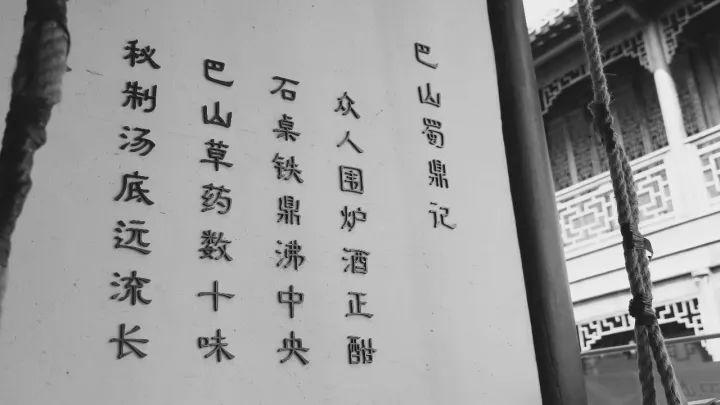 巴山蜀鼎记
众人围炉酒正酣
石桌铁鼎沸中央
巴山草药数十味
秘制汤底远流长